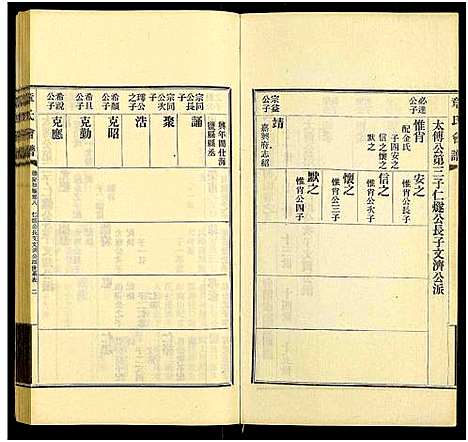 章氏會譜
太傅公第三子仁燧公長子文濟公派
必達公子
惟肖
配金氏
子四安之
信之懷之
默之
安之
惟肖公長子
信之
惟肖公次子
懷之
惟肖公三子
默之
惟肖公四子
宗益公子
靖
嘉興府志紹
興年間仕海
鹽縣縣丞
誦
宗同公長子
聚
宗同公次子
浩
璆公之子
克昭
希顏公子
克勤
希且公子
克應
希說公子
章氏會譜